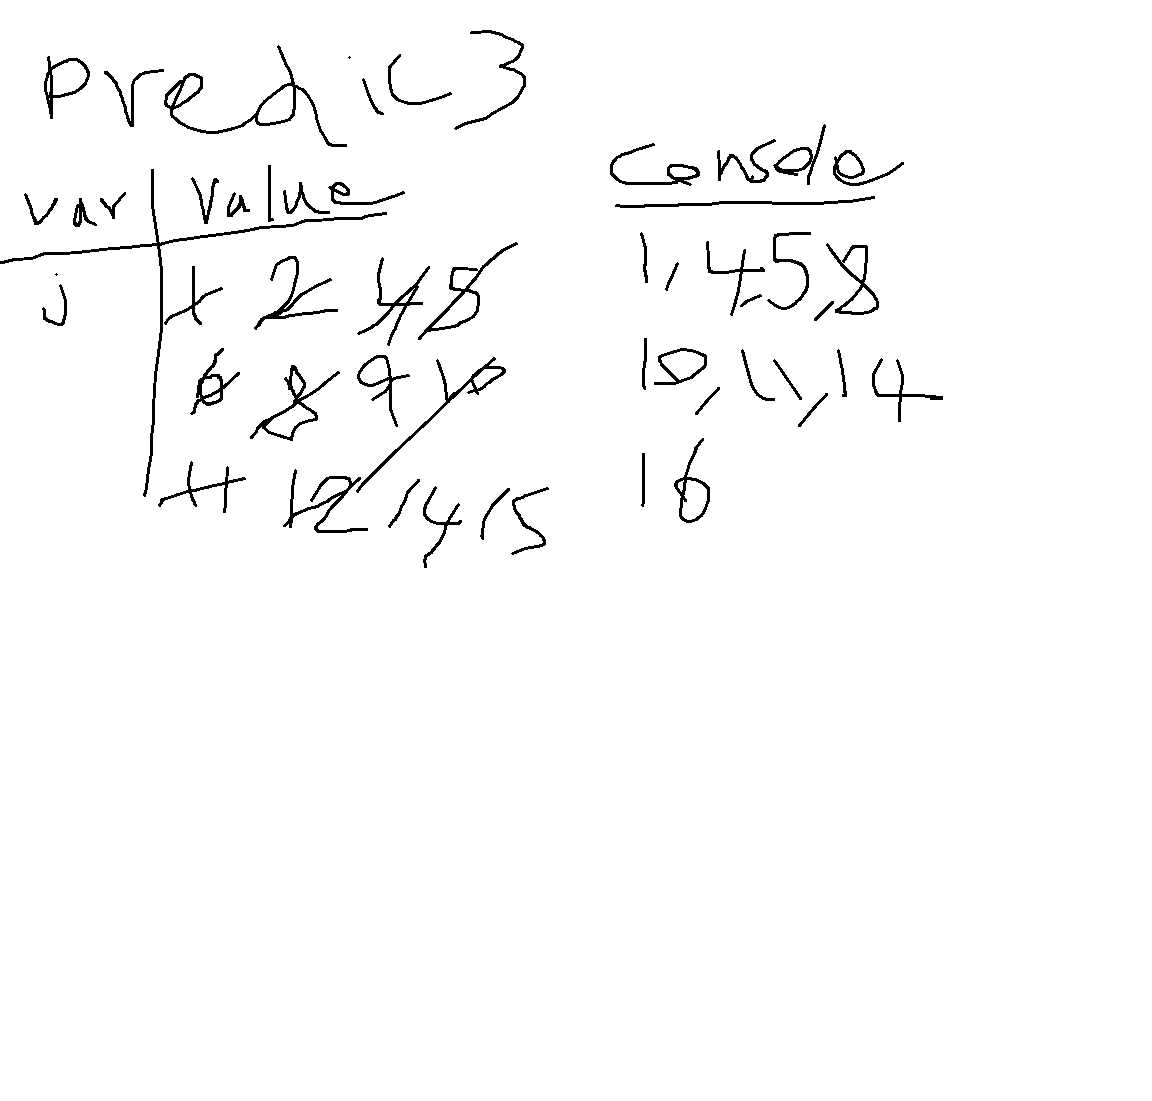 Predic 3
var value
j 1 2 4 5
6 8 9 10
11 12 14 15
console
1, 4, 5, 8
10, 11, 14
16